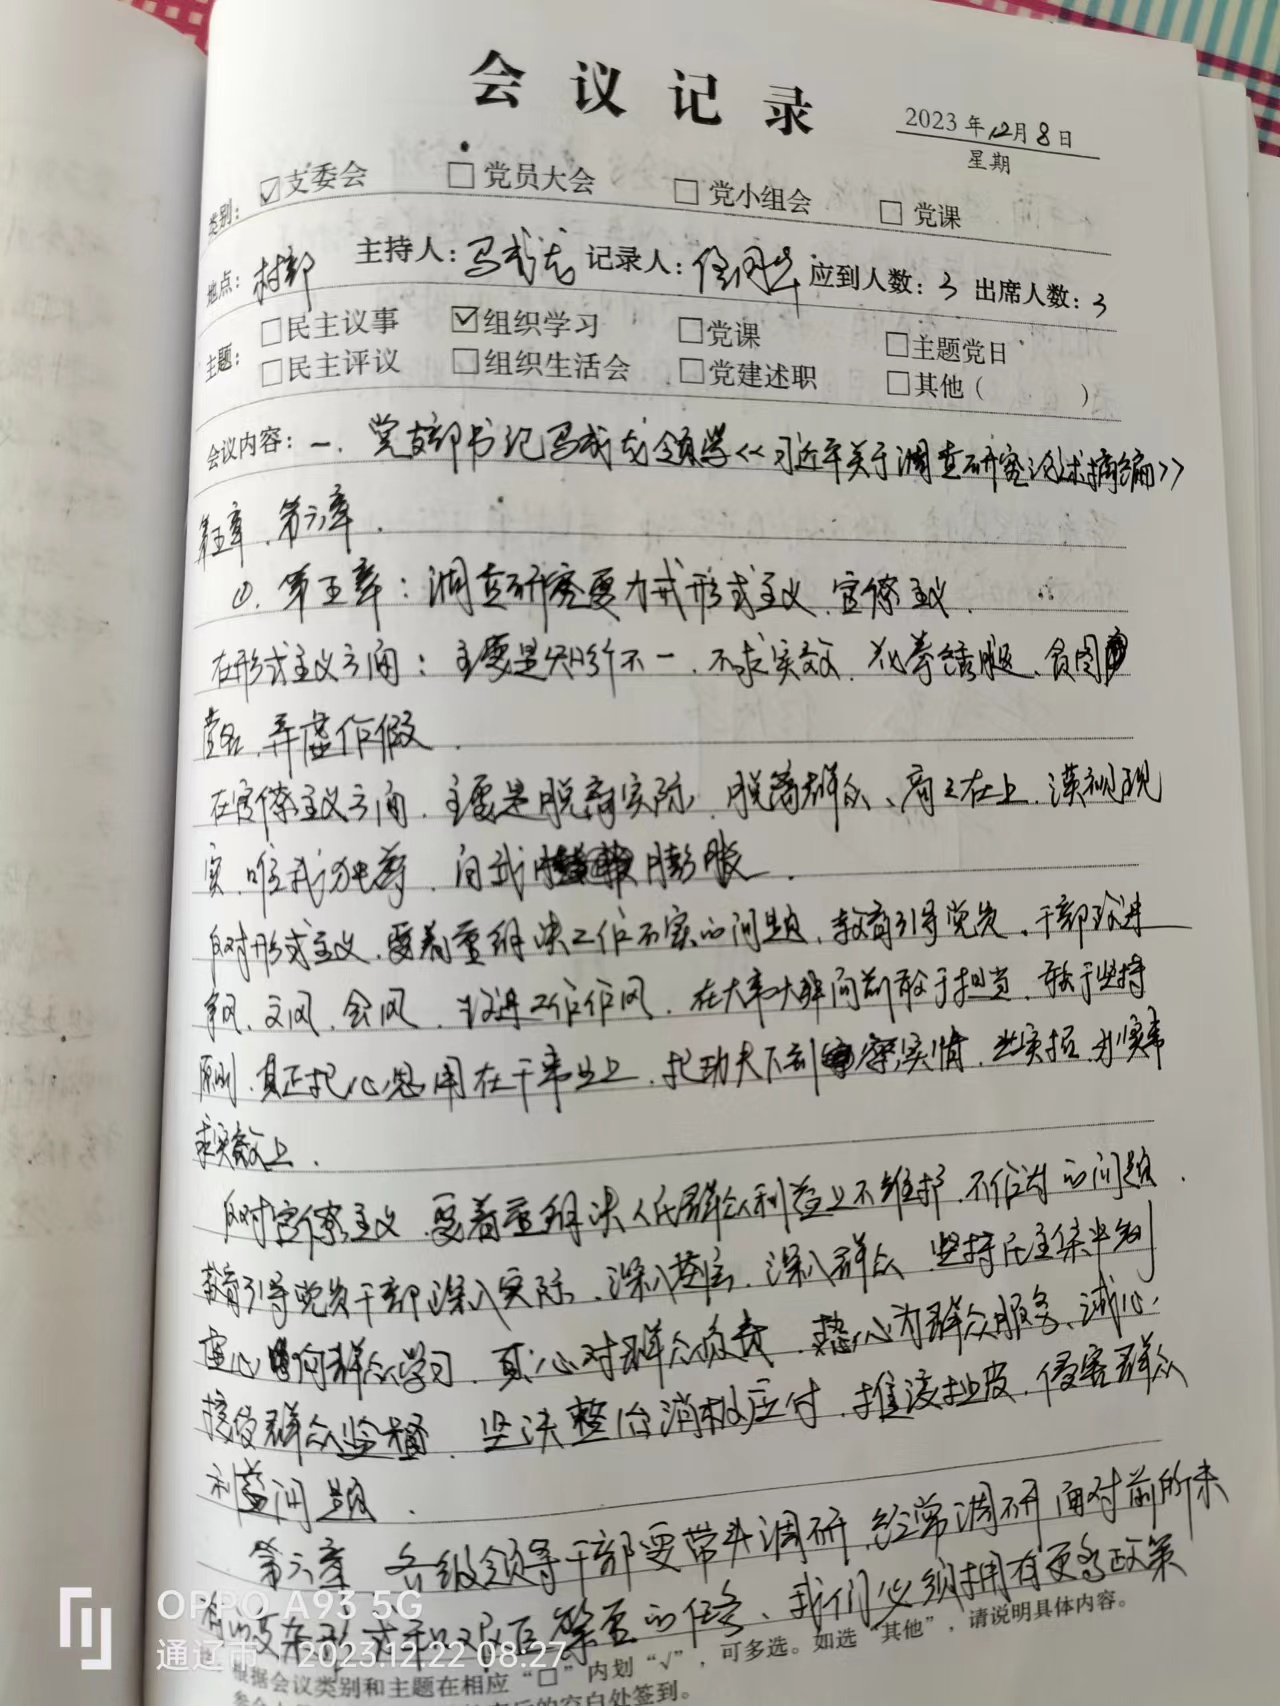 会议记录
2023年12月8日
星期
类别： ☑支委会 □党员大会 □党小组会 □党课
地点：村部 主持人：马成龙 记录人： 应到人数：3 出席人数：3
主题： □民主议事 ☑组织学习 □党课 □主题党日
□民主评议 □组织生活会 □党建述职 □其他（ ）
会议内容：一、党支部书记马成龙领学《习近平关于调查研究论述摘编》
第五章、第六章.
①. 第五章：调查研究要力戒形式主义、官僚主义.
在形式主义方面：主要是知行不一、不求实效、花拳绣腿、贪图
虚名、弄虚作假.
在官僚主义方面，主要是脱离实际，脱离群众、高高在上、漠视现
实、唯我独尊、自我膨胀.
反对形式主义、要着重解决工作不实的问题、教育引导党员、干部改进
学风、文风、会风、改进工作作风、在大事大非面前敢于担当、敢于坚持
原则、真正把心思用在干事业上、把功夫下到察实情、出实招、办实事
求实效上.
反对官僚主义、要着重解决人民群众利益上不维护、不作为的问题.
教育引导党员干部深入实际、深入基层、深入群众、坚持民主集中制
虚心向群众学习、真心对群众负责、热心为群众服务、诚心
接受群众监督、坚决整治消极应付、推诿扯皮、侵害群众
利益问题.
第六章 各级领导干部要带头调研、经常调研 面对前所未
有的复杂形式和艰巨繁重的任务、我们必须拥有更高政策
根据会议类别和主题在相应“□”内划“√”，可多选。如选“其他”，请说明具体内容。
的空白处签到。
OPPO A93 5G
通辽市 2023.12.22 08:27